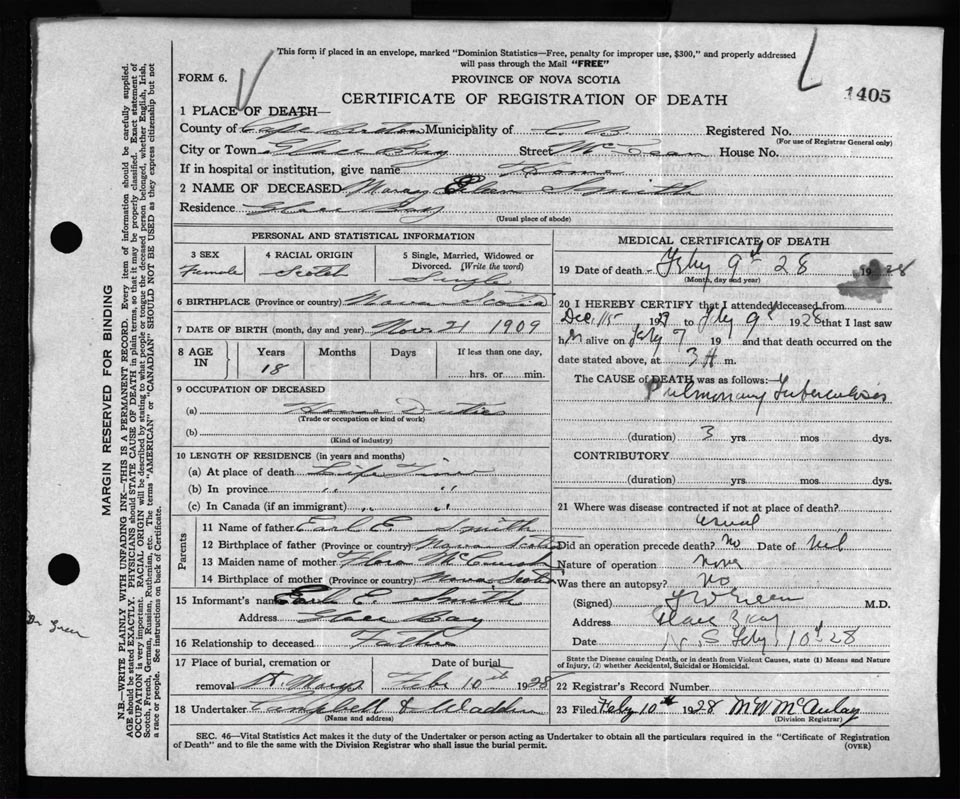 This form if placed in an envelope, marked "Dominion Statistics—Free, penalty for improper use, $300," and properly addressed
will pass through the Mail "FREE"
FORM 6.
PROVINCE OF NOVA SCOTIA
CERTIFICATE OF REGISTRATION OF DEATH
1405
1 PLACE OF DEATH—
County of Cape Breton Municipality of C. B. Registered No.
(For use of Registrar General only)
City or Town Glace Bay Street McLean House No.
If in hospital or institution, give name Home
2 NAME OF DECEASED Mary Ellen Smith
Residence Glace Bay
(Usual place of abode)
PERSONAL AND STATISTICAL INFORMATION
3 SEX 4 RACIAL ORIGIN 5 Single, Married, Widowed or
Divorced. (Write the word)
Female Scotch Single
6 BIRTHPLACE (Province or country) Nova Scotia
7 DATE OF BIRTH (month, day and year) Nov. 21 1909
8 AGE IN Years Months Days If less than one day,
18 hrs. or min.
9 OCCUPATION OF DECEASED
(a) Home Duties
(Trade or occupation or kind of work)
(b)
(Kind of industry)
10 LENGTH OF RESIDENCE (in years and months)
(a) At place of death Life Time
(b) In province " "
(c) In Canada (if an immigrant) " "
Parents
11 Name of father Earl E. Smith
12 Birthplace of father (Province or country) Nova Scotia
13 Maiden name of mother Flora
14 Birthplace of mother (Province or country) Nova Scotia
15 Informant's name Earl E. Smith
Address Glace Bay
16 Relationship to deceased Father
17 Place of burial, cremation or Date of burial
removal St. Marys Feb 10th 1928
18 Undertaker Campbell & Wadden
(Name and address)
MEDICAL CERTIFICATE OF DEATH
19 Date of death Feby 9th 28 1928
(Month, day and year)
20 I HEREBY CERTIFY that I attended deceased from
Dec 15 192 to Feby 9th 1928 that I last saw
her alive on Feby 7 19 and that death occurred on the
date stated above, at 3 A m.
The CAUSE of DEATH was as follows:—
Pulmonary Tuberculosis
(duration) 3 yrs mos dys.
CONTRIBUTORY
(duration) yrs mos dys.
21 Where was disease contracted if not at place of death?
usual
Did an operation precede death? No Date of
Nature of operation none
Was there an autopsy? No
(Signed) Green M.D.
Address Glace Bay
Date N.S Feby 10th 28
State the Disease causing Death, or in death from Violent Causes, state (1) Means and Nature
of Injury, (2) whether Accidental, Suicidal or Homicidal.
22 Registrar's Record Number
23 Filed Feby 10th 1928 M W McAulay
(Division Registrar)
SEC. 46—Vital Statistics Act makes it the duty of the Undertaker or person acting as Undertaker to obtain all the particulars required in the "Certificate of Registration
of Death" and to file the same with the Division Registrar who shall issue the burial permit.
(OVER)
MARGIN RESERVED FOR BINDING
N.B.—WRITE PLAINLY WITH UNFADING INK—THIS IS A PERMANENT RECORD. Every item of information should be carefully supplied.
AGE should be stated EXACTLY. PHYSICIANS should STATE CAUSE OF DEATH in plain terms, so that it may be properly classified. Exact statement of
OCCUPATION is very important. RACIAL ORIGIN will be described by stating to what people or tongue the deceased person belonged, whether English, Irish,
Scotch, French, German, Russian, Ruthenian, etc. The terms "AMERICAN" or "CANADIAN" SHOULD NOT BE USED as they express citizenship but not
a race or people. See instructions on back of Certificate.
Dr Green